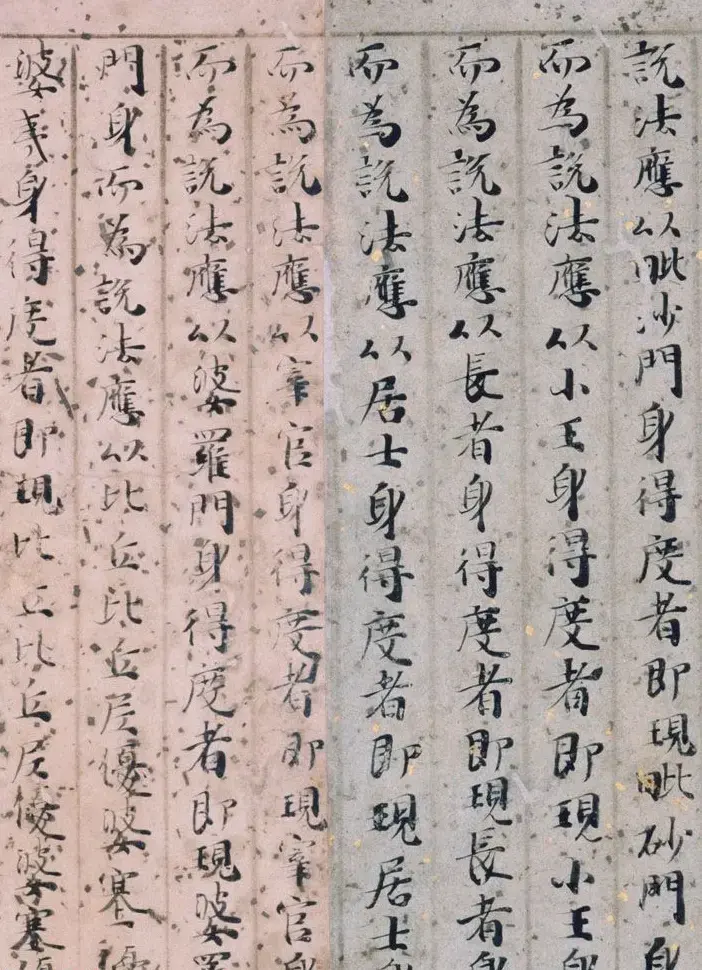 説法應以毗沙門身得度者即現毗砂門身
而為説法應以小王身得度者即現小王
而為説法應以長者身得度者即現長者
而為説法應以居士身得度者即現居士
而為説法應以宰官身得度者即現宰官身
而為説法應以婆羅門身得度者即現婆羅
門身而為説法應以比丘比丘尼優婆塞優
婆夷身得度者即現比丘比丘尼優婆塞